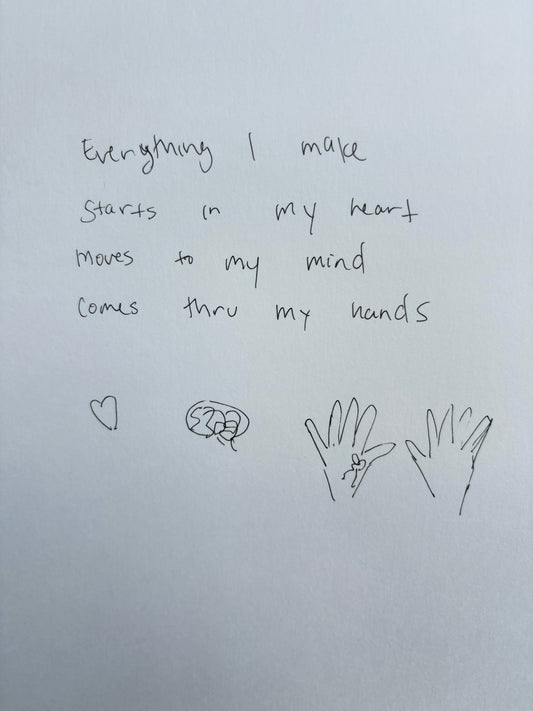 Everything I make
Starts in my heart
moves to my mind
Comes thru my hands